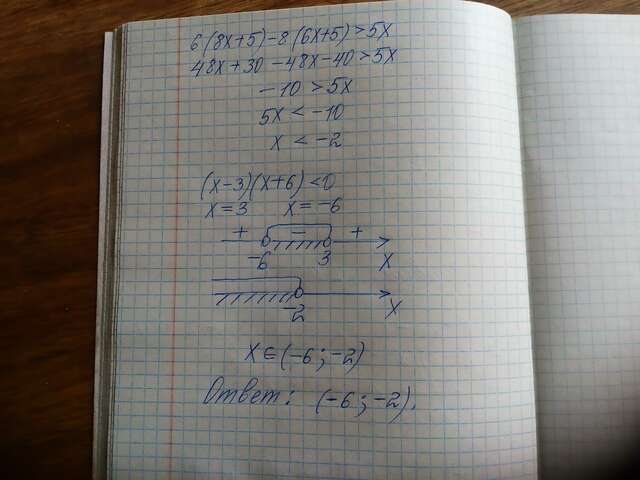 6(8x+5)-8(6x+5)>5x
48x+30-48x-40>5x
-10>5x
5x<-10
x<-2
(x-3)(x+6)<0
x=3 x=-6
+ - +
-6 3 x
-2 x
x∈(-6;-2)
Ответ: (-6;-2).